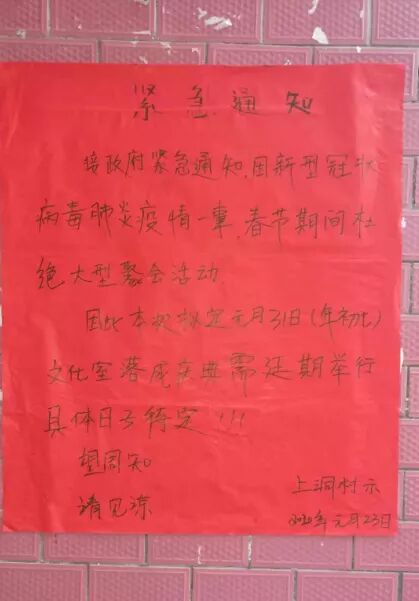 紧急通知
接政府紧急通知,因新型冠状
病毒肺炎疫情一事,春节期间杜
绝大型聚会活动.
因此本村拟定元月31日(年初七)
文化室落成庆典需延期举行
具体日子待定!!!
望周知
请见谅
上洞村示
2020年元月23日